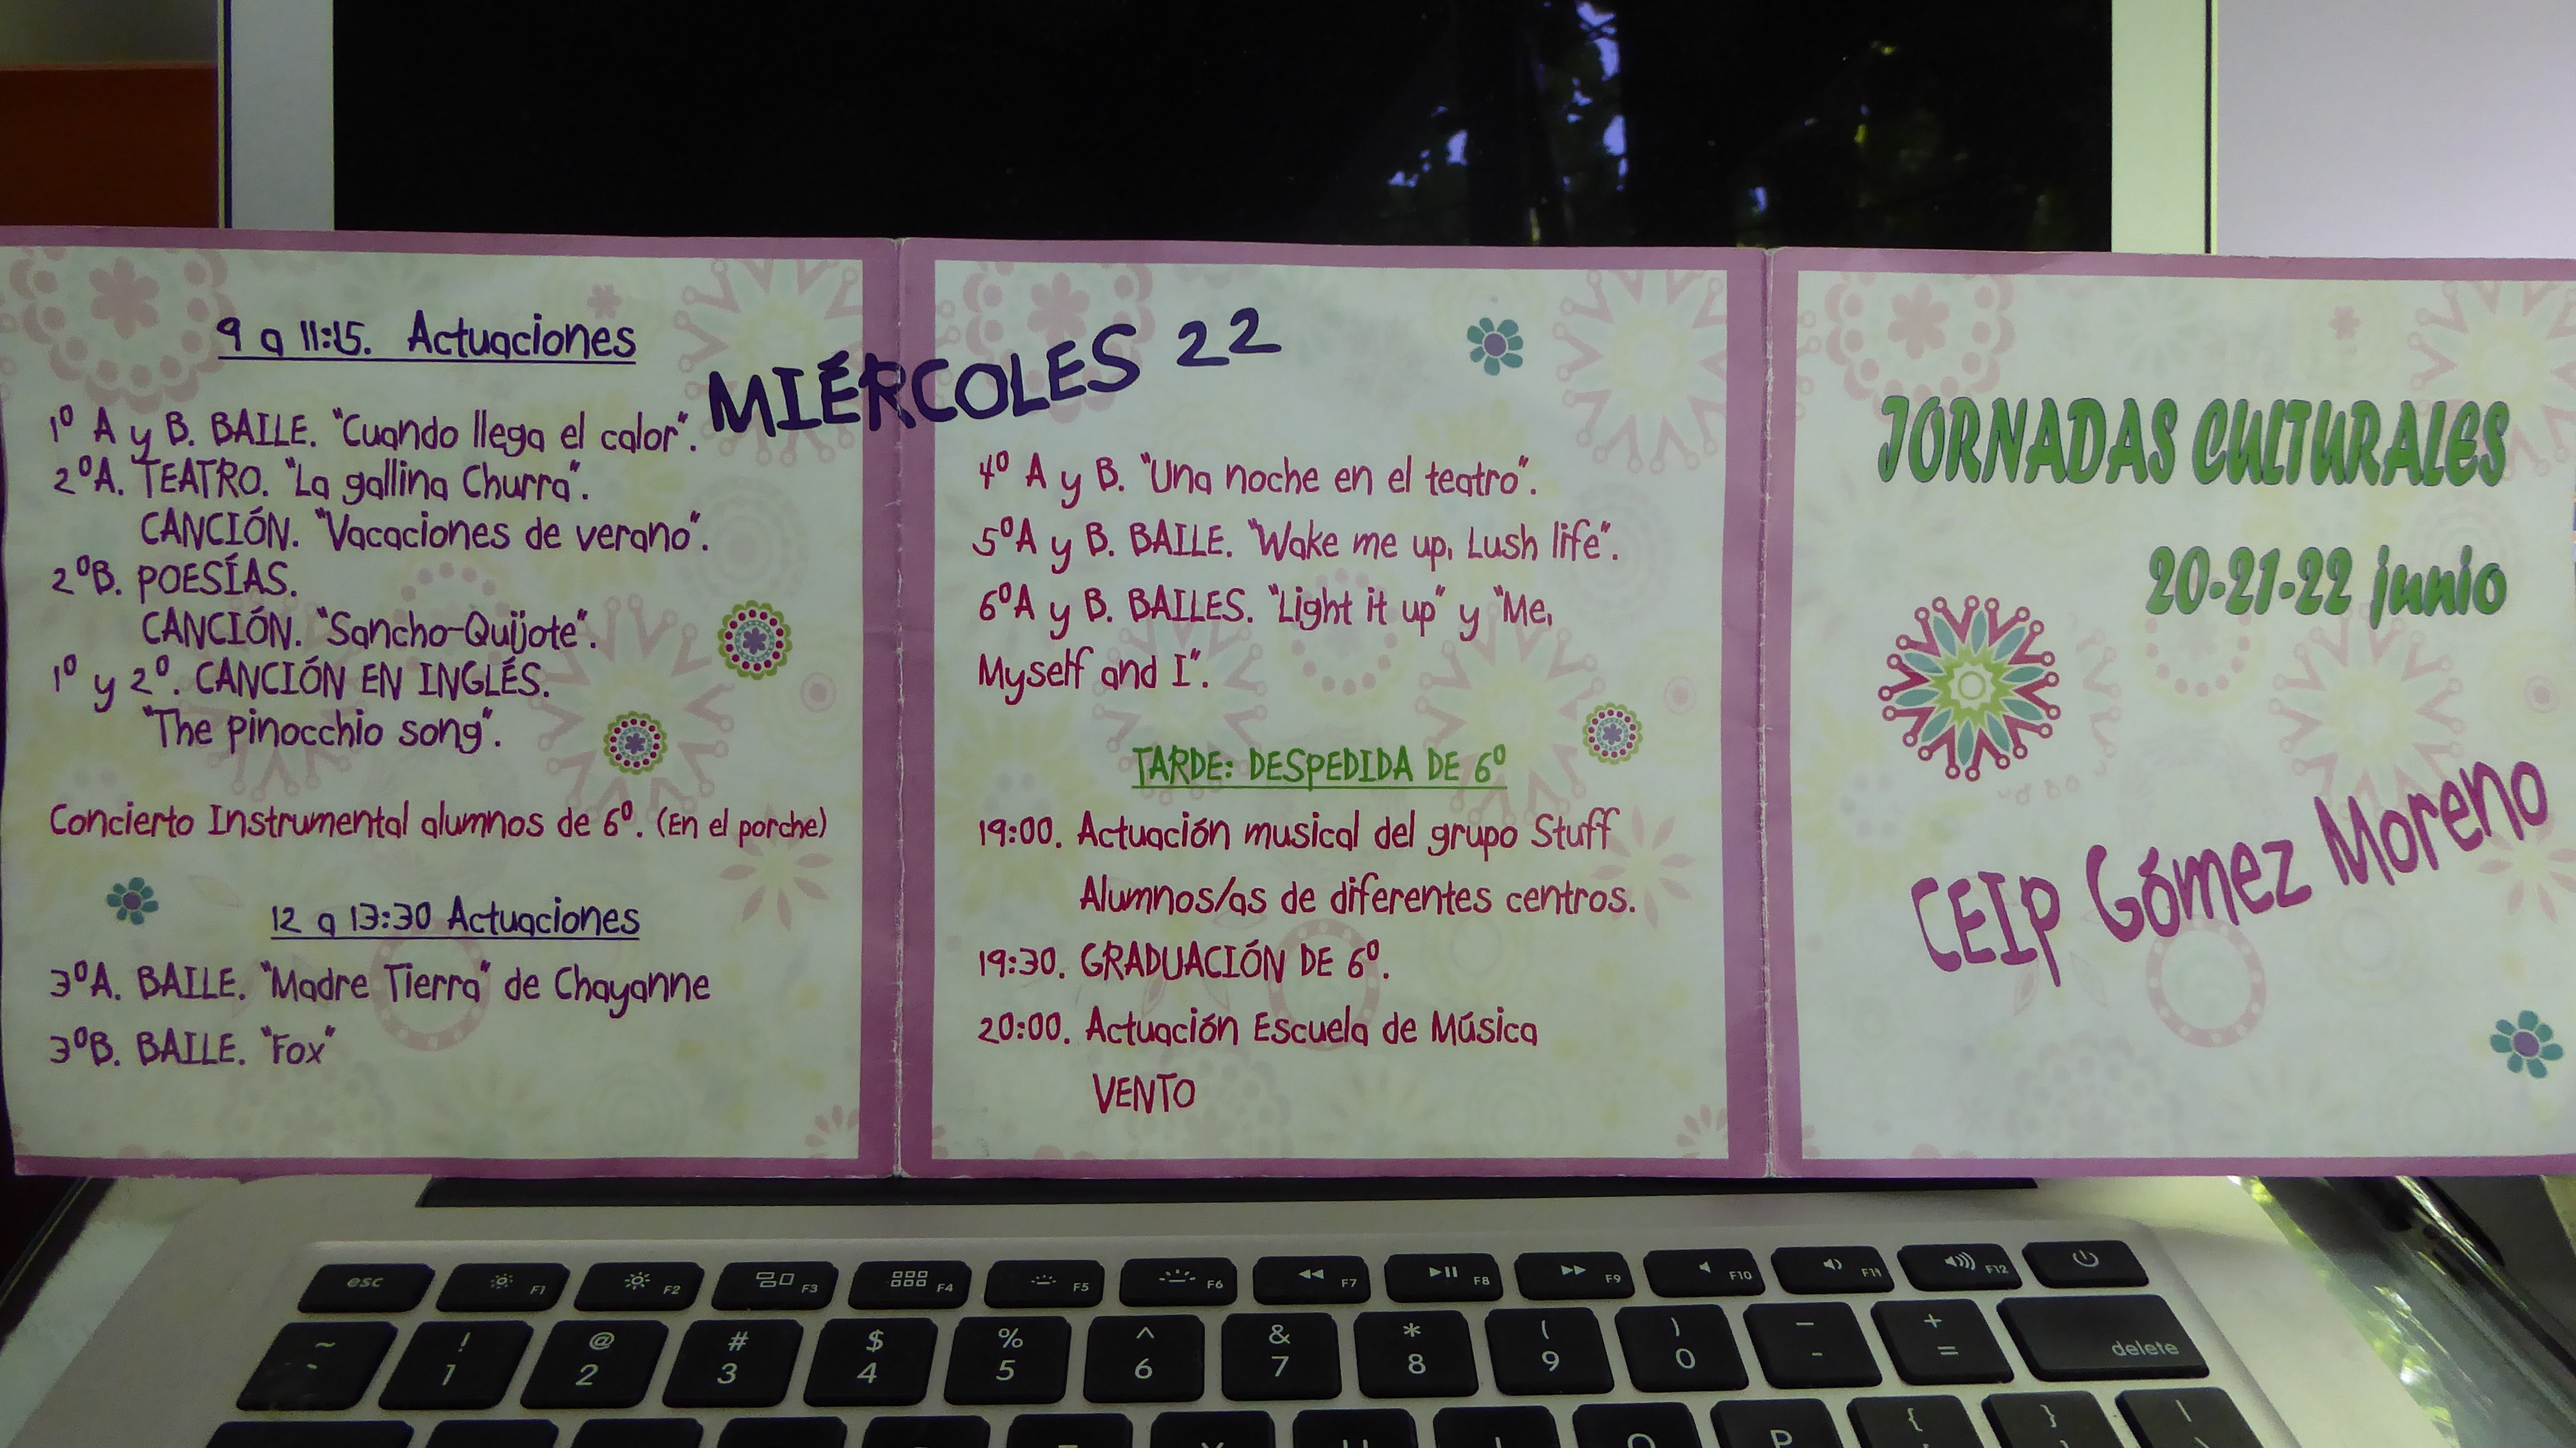 MIÉRCOLES 22
9 a 11:15. Actuaciones
1º A y B. BAILE. "Cuando llega el calor".
2ºA. TEATRO. "La gallina Churra".
CANCIÓN. "Vacaciones de verano".
2ºB. POESÍAS.
CANCIÓN. "Sancho-Quijote".
1º y 2º. CANCIÓN EN INGLÉS.
"The pinocchio song".
Concierto Instrumental alumnos de 6º. (En el porche)
12 a 13:30 Actuaciones
3ºA. BAILE. "Madre Tierra" de Chayanne
3ºB. BAILE. "Fox"
4º A y B. "Una noche en el teatro".
5ºA y B. BAILE. "Wake me up, Lush life".
6ºA y B. BAILES. "Light it up" y "Me,
Myself and I".
TARDE: DESPEDIDA DE 6º
19:00. Actuación musical del grupo Stuff
Alumnos/as de diferentes centros.
19:30. GRADUACIÓN DE 6º.
20:00. Actuación Escuela de Música
VENTO
JORNADAS CULTURALES
20-21-22 junio
CEIP Gómez Moreno
esc F1 F2 F3 F4 F5 F6 F7 F8 F9 F10 F11 F12
~ ! @ # $ % ^ & * ( ) — +
` 1 2 3 4 5 6 7 8 9 0 - = delete
P { } \